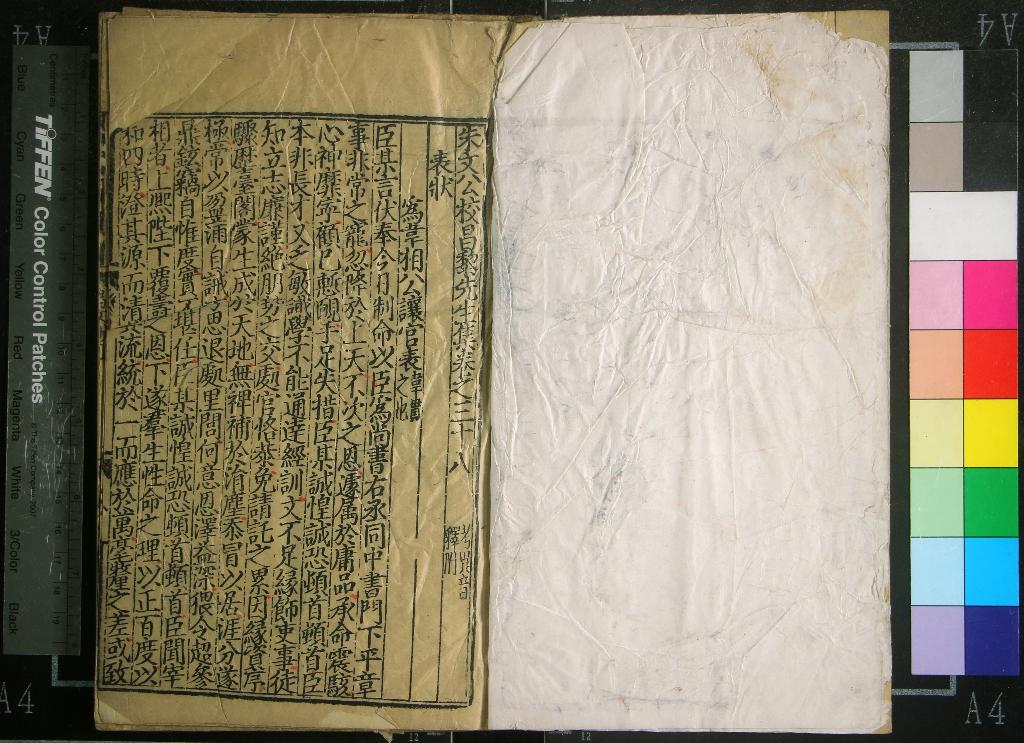 朱文公校昌黎先生集卷之三十八
考異音釋附
表狀
為韋相公讓官表韋貫之也
臣某言伏奉今日制命以臣為尚書右丞同中書門下平章
事非常之寵忽降於上天不次之恩遽屬於庸品承命震駭
心神靡寧顧己慙覥手足失措臣某誠惶誠恐頓首頓首臣
本非長才又乏敏識學不能通達經訓文不足緣飾吏事徒
知立志廉謹絕朋勢之交處官恪恭免請託之累因緣資序
驟歷臺閣蒙生成於天地無裨補於涓塵忝冒以居涯分遂
極常以盈滿自誡思退處里閭何意恩澤益深猥令超參
鼎鉉竊自惟度實不堪任臣某誠惶誠恐頓首頓首臣聞宰
相者上熙陛下覆燾之恩下遂羣生性命之理以正百度以
和四時澄其源而清其流統於一而應於萬毫釐之差或致
TIFFEN Color Control Patches
Centimetres
Blue Cyan Green Yellow Red Magenta White 3/Color Black
A4
A4
A4
A4